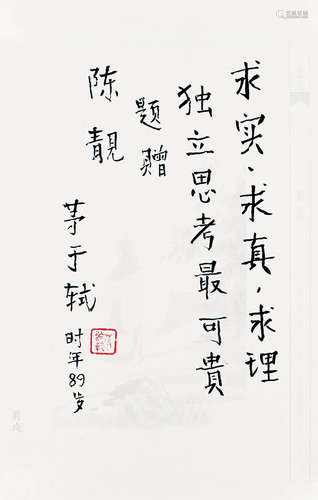 求实、求真，求理
独立思考最可貴
题赠
陈靓
茅于轼
时年89岁